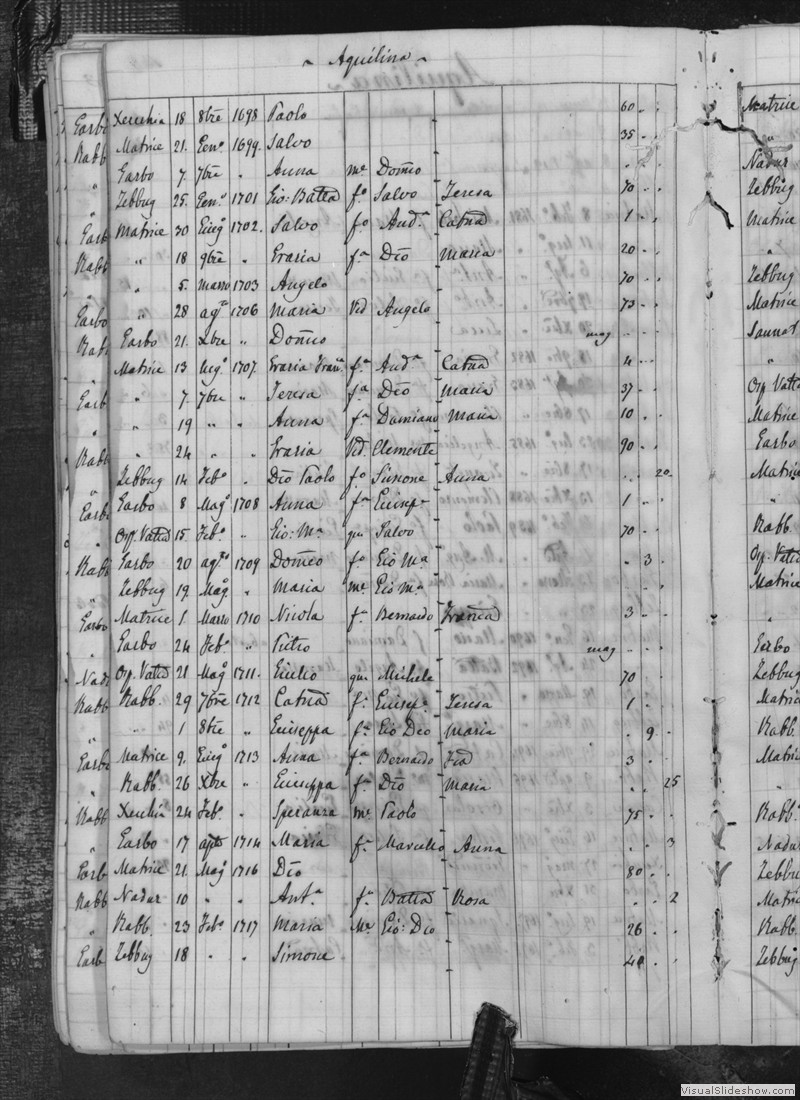 ~ Aquilina ~
Xeuchia 18 8bre 1698 Paolo 60 . .
Matrice 21. Genº 1699. Salvo 35 . .
Garbo 7. 7bre " Anna mᵉ Domco . . .
Zebbug 25. Genº 1701 Gio: Batta fº Salvo Teresa 70 . .
Matrice 30 Giugº 1702. Salvo fº Andª Catna 1 . .
" 18 9bre " Grazia fª Dio Maria 20 . .
" 5. Marzo 1703 Angelo 70 . .
" 28 agto 1706 Maria Vid Angelo 73 . .
Garbo 21. Xbre " Domco mag . . .
Matrice 13 1707. Grazia fª Andª Catna 4 . .
" 7. 7bre " Teresa fª Dio Maria 37 . .
" 19 " " Anna fª Damiano Maria 10 . .
" 24 " " Grazia Vid. Clemente 90 . .
Zebbug 14 Febº " Dio Paolo fº Simone Anna . . 20.
Garbo 8 Magº 1708 Anna fª Giusepᵉ 1 . .
Osp. Valtta 15. Febº " Gio: Mª qm Salvo 70 . .
Garbo 20 agto 1709 Domco fº Gio Mª . 3 .
Zebbug 19. Magº " Maria mᵉ Gio Mª . . .
Matrice 1 Marzo 1710 Nicola fº Bernardo Franca 3 . .
Garbo 24 Febº " Pietro mag . . .
Osp. Valtta 21 Magº 1711. Giulio qm Michele 70
Rabb. 29 7bre 1712 Catna fª Giusepᵉ Teresa 1 .
" 1 8bre " Giuseppa fª Gio Dio Maria . 9 .
Matrice 9. Giugº 1713 Anna fª Bernardo 3 . .
Rabb. 26 Xbre " Giuseppa fª Dio Maria . . 25
Xeuchia 24 Febº " Speranza mᵉ Paolo 75 . .
Garbo 17 aple 1714 Maria fª Marcello Anna . . 3
Matrice 21. Magº 1716 Dio 80 . .
Nadur 10 " " Antª fª Batta Rosa . . 2
Rabb. 23 Febº 1717 Maria Mᵉ Gio: Dio 26 . .
Zebbug 18 " " Simone . .
Matrice
"
Nadur
Zebbug
Matrice
"
Zebbug
Matrice
Sannat
"
Osp. Valtta
Matrice
Garbo
Matrice
"
Rabb.
Osp. Valtta
Matrice
"
Garbo
Zebbug
Matrice
Rabb.
Matrice
"
Rabb.
Nadur
Zebbug
Matrice
Rabb.
Zebbug
VisualSlideshow.com